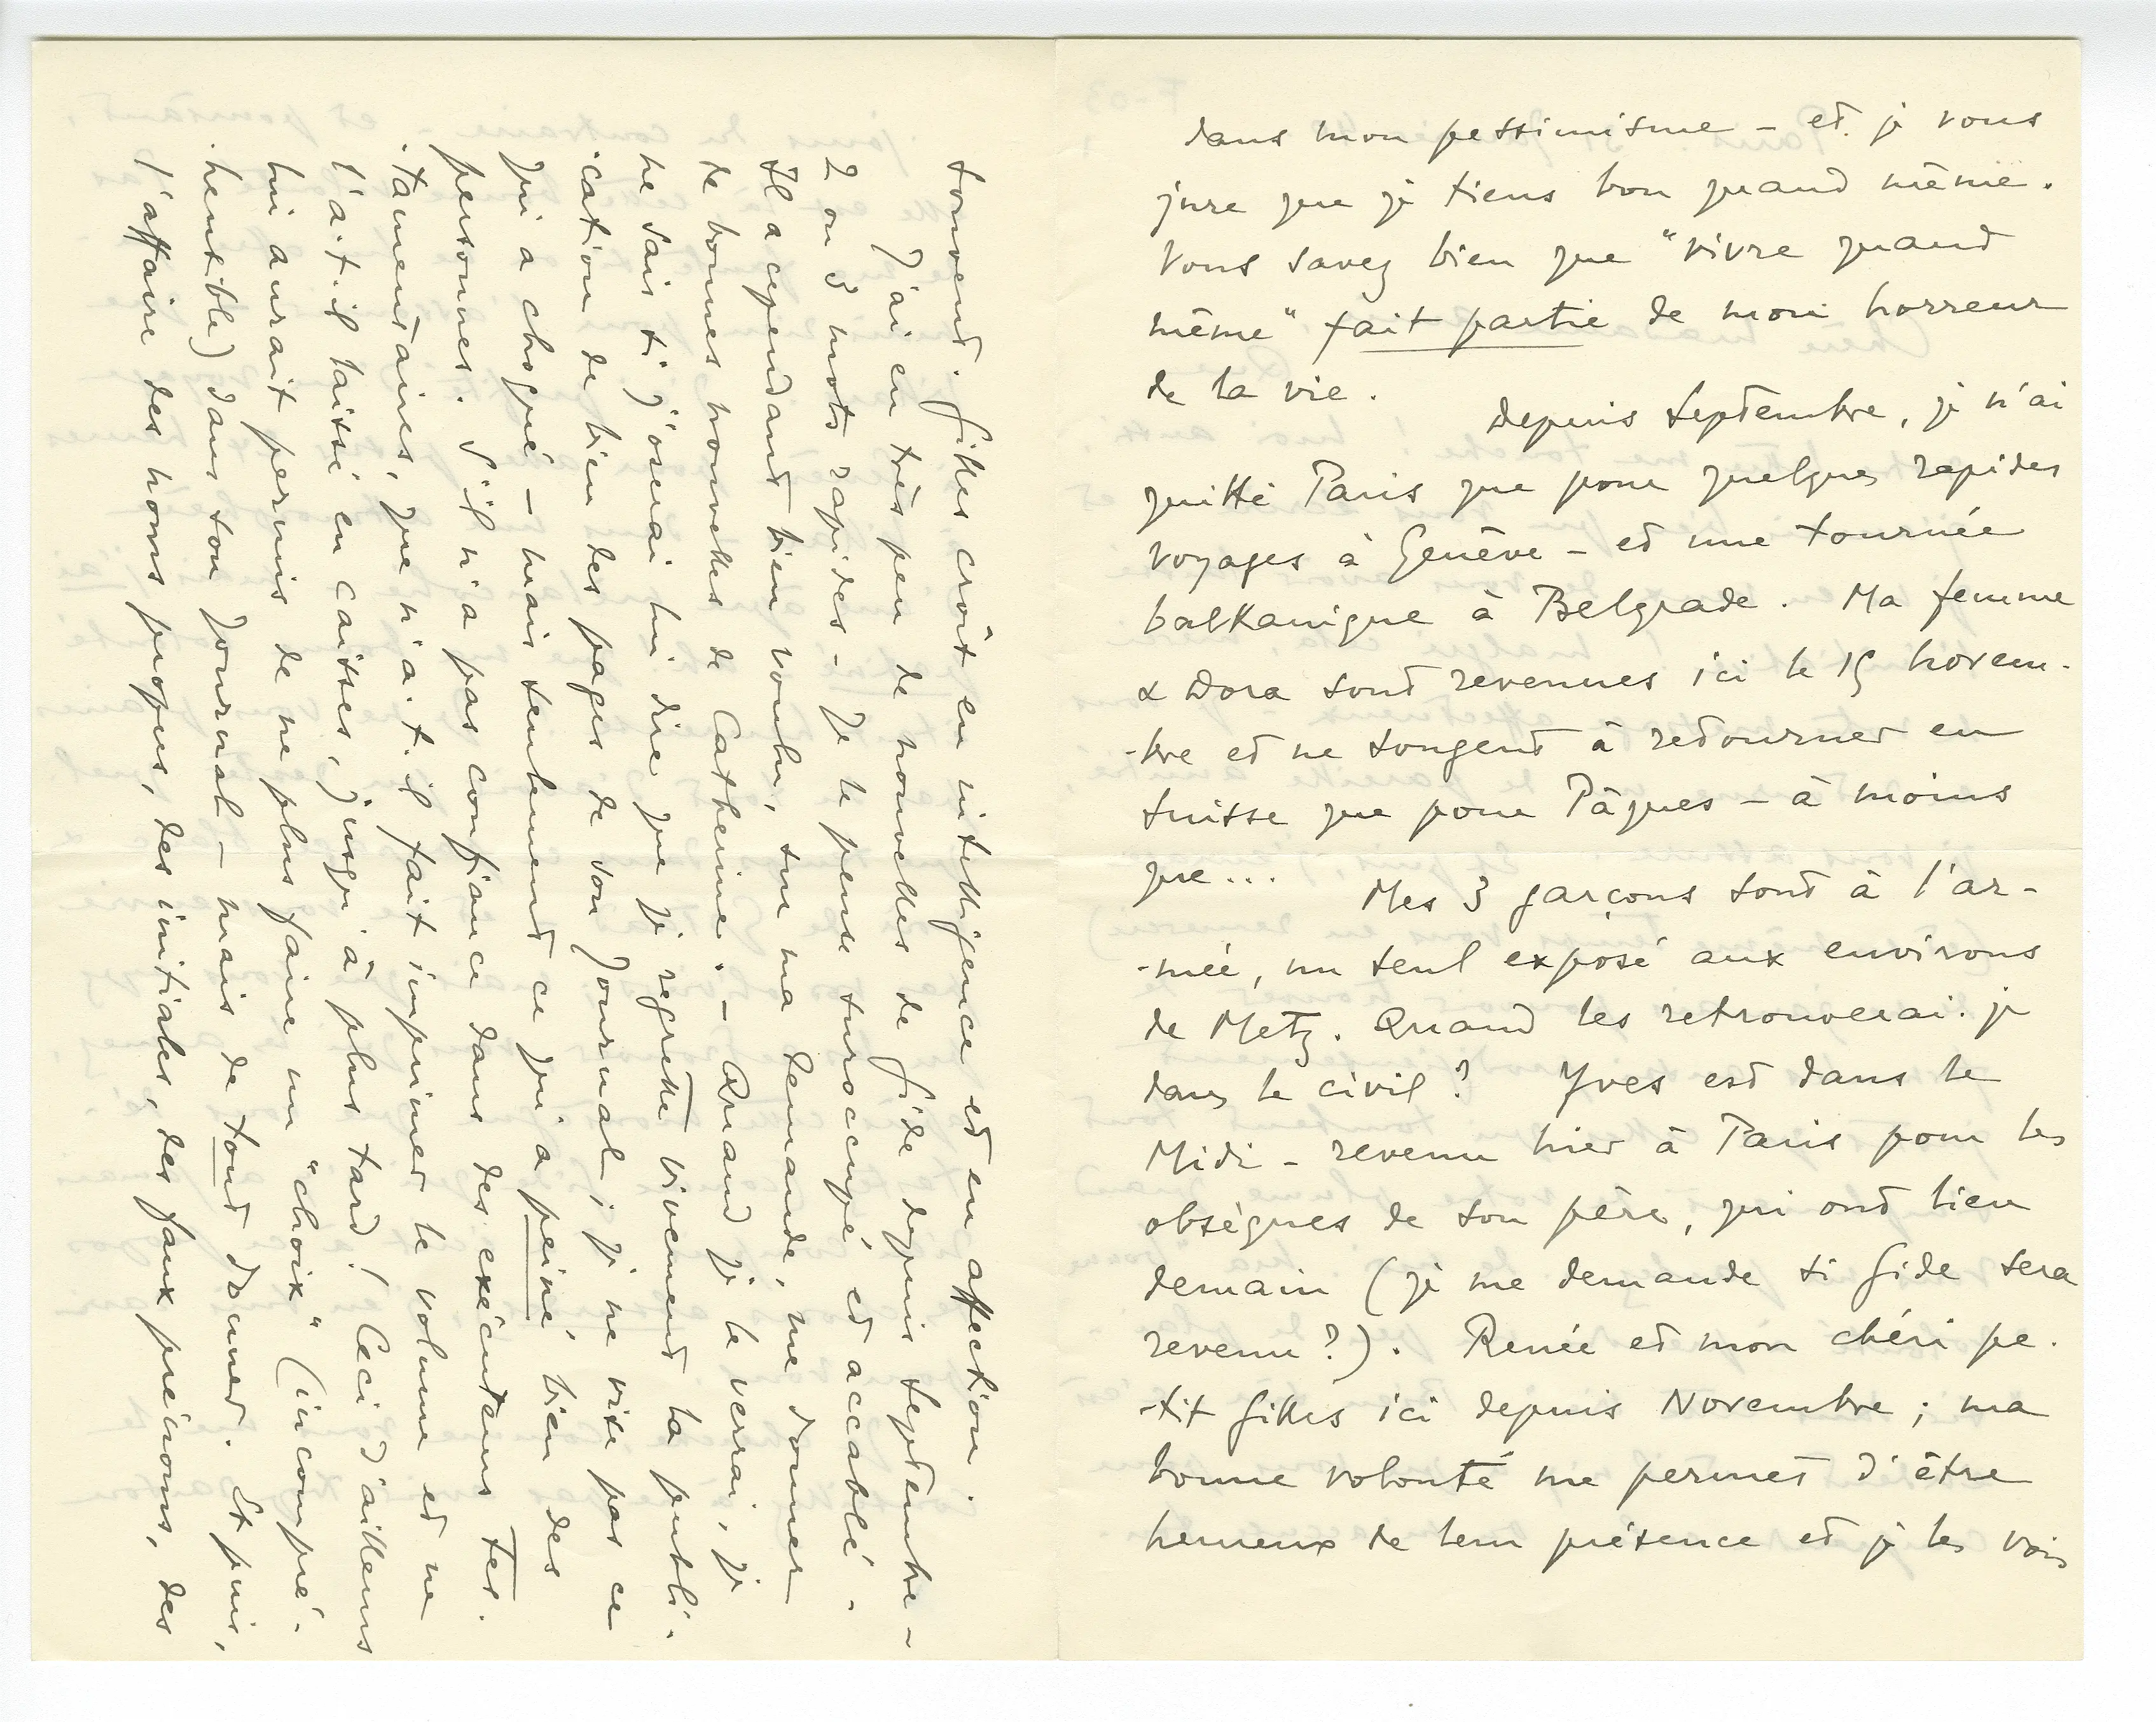 dans mon pessimisme – et je vous
jure que je tiens bon quand même.
Vous savez bien que "vivre quand
même" fait partie de mon horreur
de la vie.
Depuis Septembre, je n'ai
quitté Paris que pour quelques rapides
voyages à Genève – et une tournée
balkanique à Belgrade. Ma femme
& Dora sont revenues ici le 15 novem-
-bre et ne songent à retourner en
Suisse que pour Pâques – à moins
que...
Mes 3 garçons sont à l'ar-
-mée, un seul exposé aux environs
de Metz. Quand les retrouverai-je
dans le civil? Yves est dans le
Midi – revenu hier à Paris pour les
obsèques de son père, qui ont lieu
demain (je me demande si Gide sera
revenu?). Renée et mon chéri pe-
-tit Gilles ici depuis Novembre; ma
bonne volonté me permet d'être
heureux de leur présence et je les vois
souvent. Gilles croît en intelligence et en affection.
J'ai eu très peu de nouvelles de Gide depuis Septembre –
2 ou 3 mots rapides – Je le pense suroccupé et accablé –
Il a cependant bien voulu, sur ma demande, me donner
de bonnes nouvelles de Catherine. – Quand je le verrai, je
ne sais si j'oserai lui dire que je regrette vivement la publi-
-cation de bien des pages de son Journal; je ne vise pas ce
qui a choqué – mais seulement ce qui a peiné bien des
personnes. S'il n'a pas confiance dans des exécuteurs tes-
-tamentaires, que n'a-t-il fait imprimer le volume et ne
l'a-t-il laissé en caisses, jusqu'à plus tard! Ceci d'ailleurs
lui aurait permis de ne plus faire un "choix" (incompré-
-hensible) dans son Journal – mais de tout donner. Et puis,
l'affaire des noms propres, des initiales, des faux prénoms, des